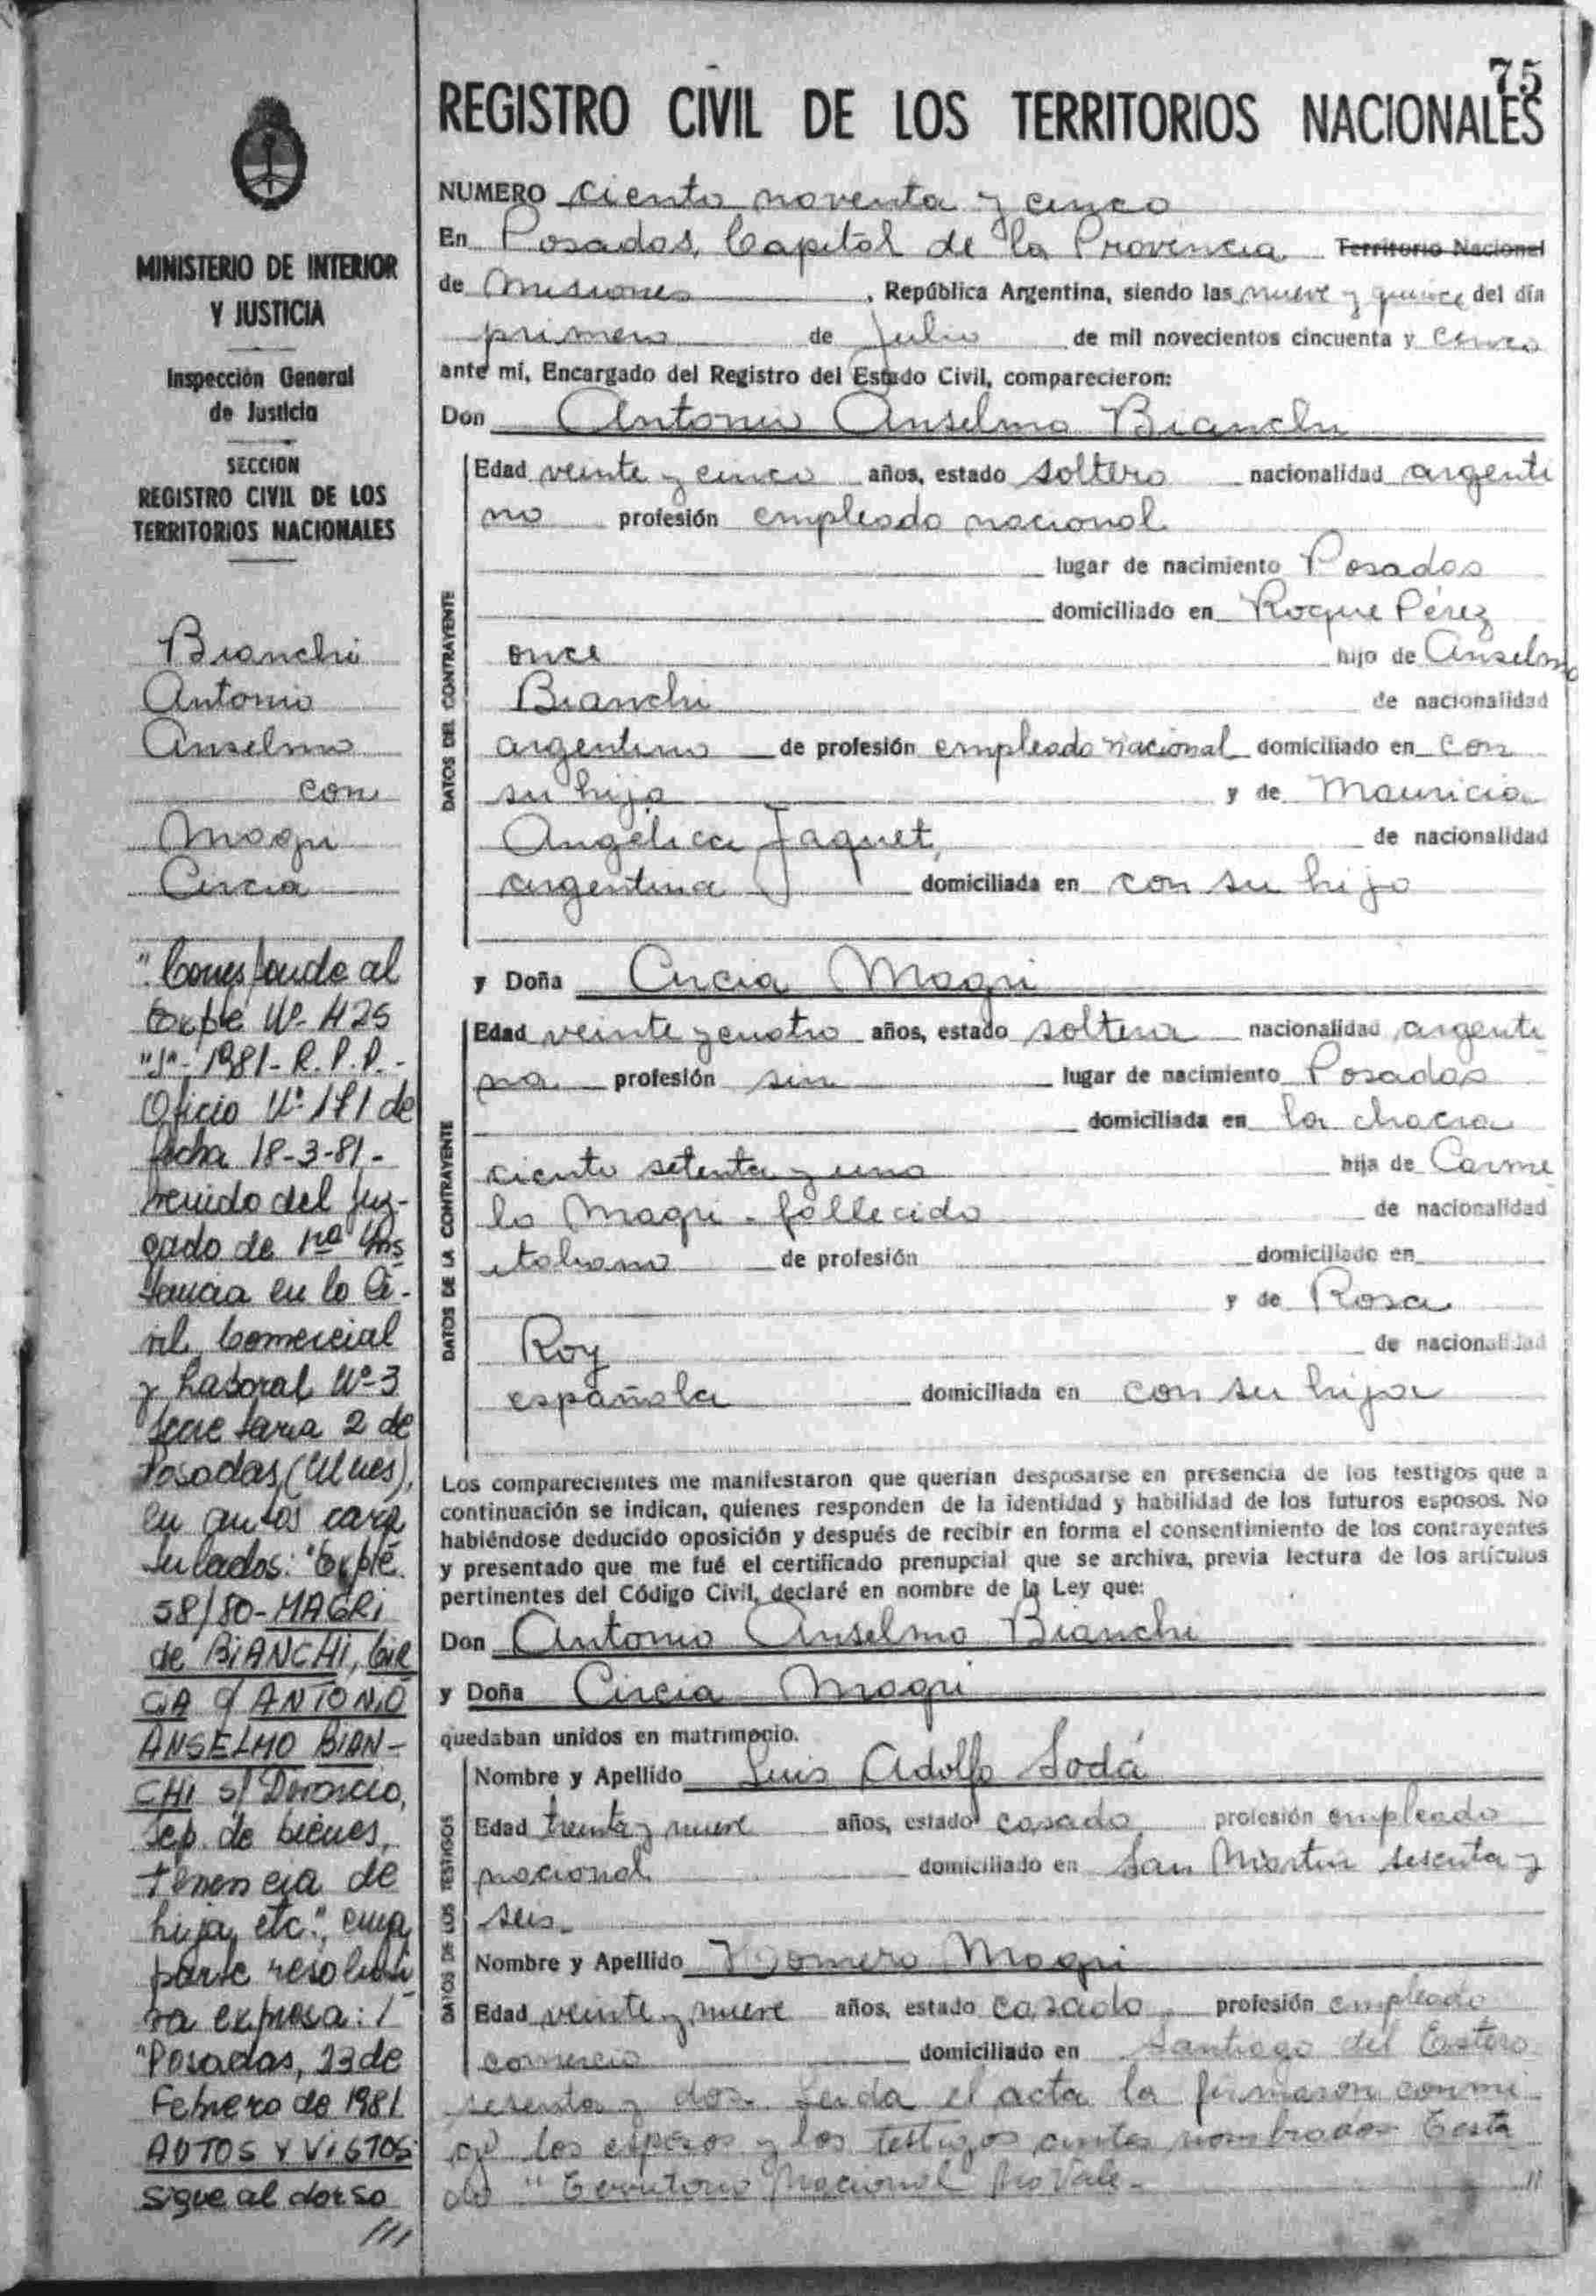 75
REGISTRO CIVIL DE LOS TERRITORIOS NACIONALES
MINISTERIO DE INTERIOR
Y JUSTICIA
Inspección General
de Justicia
SECCION
REGISTRO CIVIL DE LOS
TERRITORIOS NACIONALES
Bianchi
Antonio
Anselmo
con
Magri
Circia
"Corresponde al
Expte Nº 425
"J"- 1981- R.P.P.-
Oficio Nº 171 de
fecha 18-3-81.-
venido del Juz-
gado de 1ra Ins
tancia en lo Ci-
vil, Comercial
y Laboral Nº 3
Secretaria 2 de
Posadas, (Mnes),
en autos cara
tulados: "Expte.
58/80- MAGRI
de BIANCHI, CIR
CIA c/ ANTONIO
ANSELMO BIAN-
CHI s/ Divorcio,
sep. de bienes,
tenencia de
hija, etc.", cuya
parte resoluti
va expresa: /
"Posadas, 23 de
Febrero de 1981
AUTOS Y VISTOS:
sigue al dorso
///
NUMERO ciento noventa y cinco
En Posadas, Capital de la Provincia Territorio Nacional
de Misiones, República Argentina, siendo las nueve y quince del día
primero de Julio de mil novecientos cincuenta y cinco
ante mí, Encargado del Registro del Estado Civil, comparecieron:
Don Antonio Anselmo Bianchi
DATOS DEL CONTRAYENTE
Edad veinte y cinco años, estado soltero nacionalidad argenti
no profesión empleado nacional
lugar de nacimiento Posadas
domiciliado en Roque Pérez
once hijo de Anselmo
Bianchi de nacionalidad
argentino de profesión empleado nacional domiciliado en con
su hijo y de Mauricia
Angélica Jaquet, de nacionalidad
argentina domiciliada en con su hijo
y Doña Circia Magri
DATOS DE LA CONTRAYENTE
Edad veinte y cuatro años, estado soltera nacionalidad argenti
na profesión sin lugar de nacimiento Posadas
domiciliada en la chacra
ciento setenta y uno hija de Carme
lo Magri - fallecido de nacionalidad
italiano de profesión domiciliado en
y de Rosa
Roy de nacionalidad
española domiciliada en con su hija
Los comparecientes me manifestaron que querían desposarse en presencia de los testigos que a
continuación se indican, quienes responden de la identidad y habilidad de los futuros esposos. No
habiéndose deducido oposición y después de recibir en forma el consentimiento de los contrayentes
y presentado que me fué el certificado prenupcial que se archiva, previa lectura de los artículos
pertinentes del Código Civil, declaré en nombre de la Ley que:
Don Antonio Anselmo Bianchi
y Doña Circia Magri
quedaban unidos en matrimocio.
DATOS DE LOS TESTIGOS
Nombre y Apellido Luis Adolfo Sodá
Edad treinta y nueve años, estado casado profesión empleado
nacional domiciliado en San Martin sesenta y
seis.
Nombre y Apellido Homero Magri
Edad veinte y nueve años, estado casado profesión empleado
comercio domiciliado en Santiago del Estero
sesenta y dos. Leida el acta la firmaron conmi
go los esposos y los testigos antes nombrados Testa
do "Territorio Nacional No Vale- //